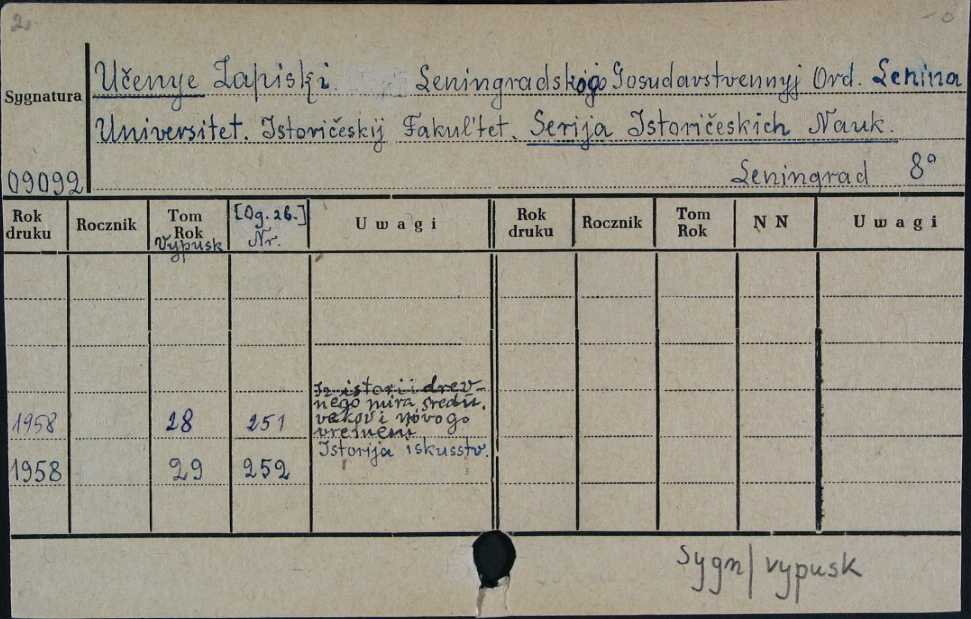 2.
Sygnatura
Učenye Zapiski. Leningradskogo Gosudavstvennyj Ord. Lenina
Universitet. Istoričeskij Fakul'tet. Serija Istoričeskich Nauk.
09092
Leningrad 8°
Rok druku Rocznik Tom Rok Vypusk [Og. zb.] Nr. Uwagi Rok druku Rocznik Tom Rok NN Uwagi
Iz istorii drev-
nego mira, sredn.
vekov i novogo
1958 28 251 vremeni
Istorija iskusstv.
1958 29 252
Sygn/vypusk